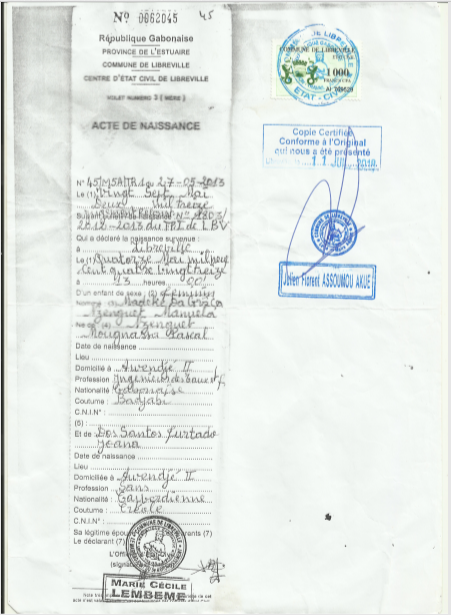 Nº 0662045
45
République Gabonaise
PROVINCE DE L'ESTUAIRE
COMMUNE DE LIBREVILLE
CENTRE D'ÉTAT CIVIL DE LIBREVILLE
VOLET NUMERO 2 (MERE)
ACTE DE NAISSANCE
N° 45/M5A/TR1 du 27-05-2013
Le (1) Vingt Sept Mai
Deux mil treize
2012-2013 du TPI de LBV
Qui a déclaré la naissance survenue :
Libreville
Le (1) Quatorze Mai mil neuf
Cent quatre vingt treize
à 23 heures 00
D'un enfant de sexe : (2) féminin
Manuela
Né de (4) Azenguet
Mougnasra Pascal
Date de naissance
Lieu
Domicilié à Awendjé II
Profession Ingénieur
Nationalité Gabonaise
Coutume : Badjabi
C.N.I.N° :
(5) :
Et de Dos Santos Furtado
Joana
Date de naissance
Lieu
Domiciliée à Awendjé II
Profession Sans
Nationalité :
Coutume : Créole
C.N.I.N° :
Sa légitime épou
rents (7)
Le déclarant (7)
L'O
(signat
MARIE CÉCILE
LEMBEME
COMMUNE DE LIBREVILLE
1000
ETAT - CIVIL
Copie Certifiée
Conforme à l'Original
qui nous a été présenté
Julien Florent ASSOUMOU AKUE